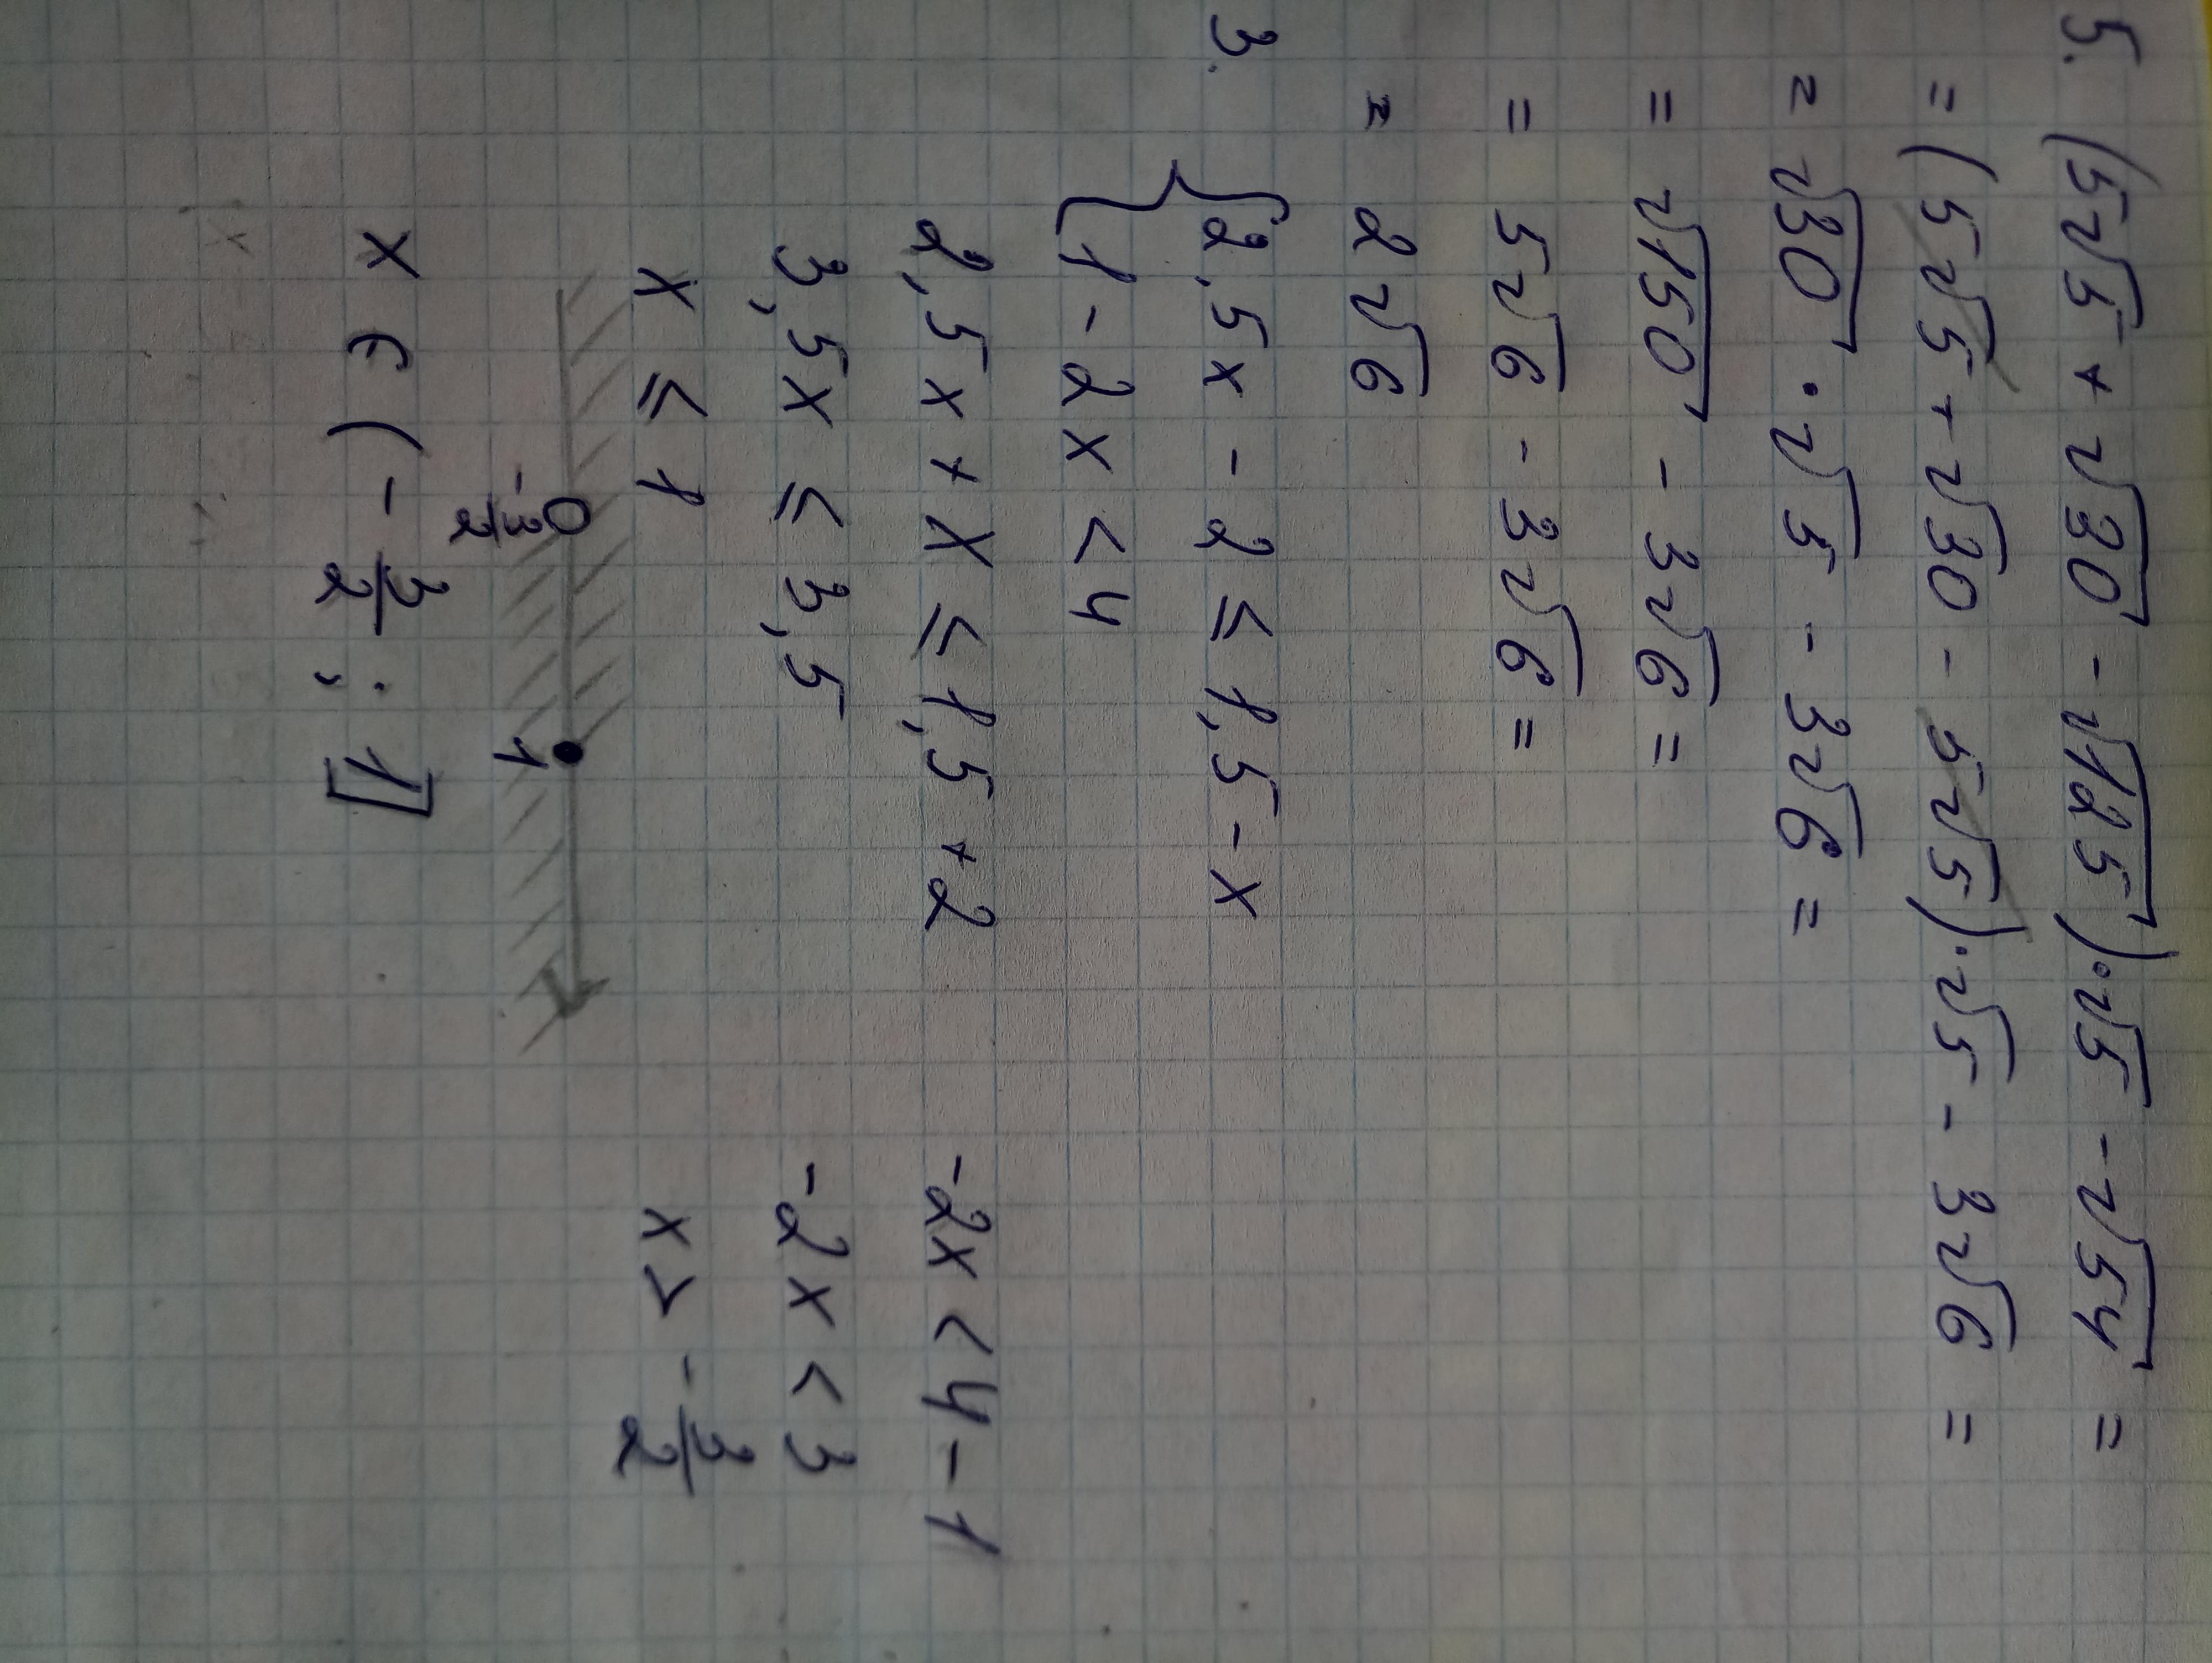 5. (5√5 + √30 - √125)·√5 - √54 =
= (5√5 + √30 - 5√5)·√5 - 3√6 =
= √30 · √5 - 3√6 =
= √150 - 3√6 =
= 5√6 - 3√6 =
= 2√6
3. { 2,5x - 2 ≤ 1,5 - x
1 - 2x < 4
2,5x + x ≤ 1,5 + 2 -2x < 4 - 1
3,5x ≤ 3,5 -2x < 3
x ≤ 1 x > -3/2
-3/2 1
x ∈ (-3/2 ; 1]